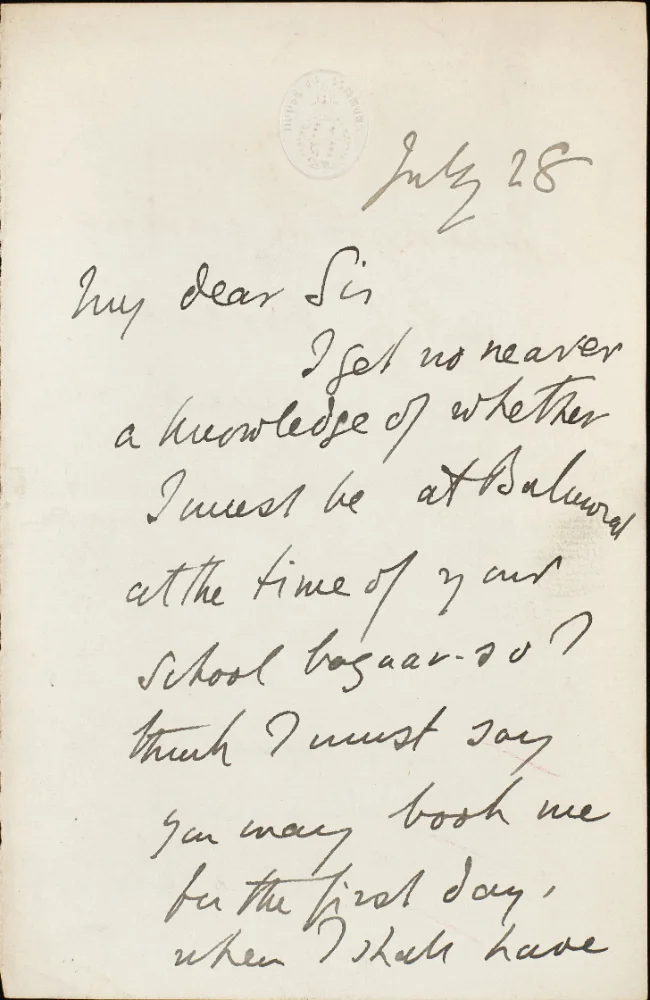 July 28
My dear Sir
I get no nearer
a knowledge of whether
I must be at Balmoral
at the time of your
school bazaar - so I
think I must say
you may book me
for the first day,
when I shall have